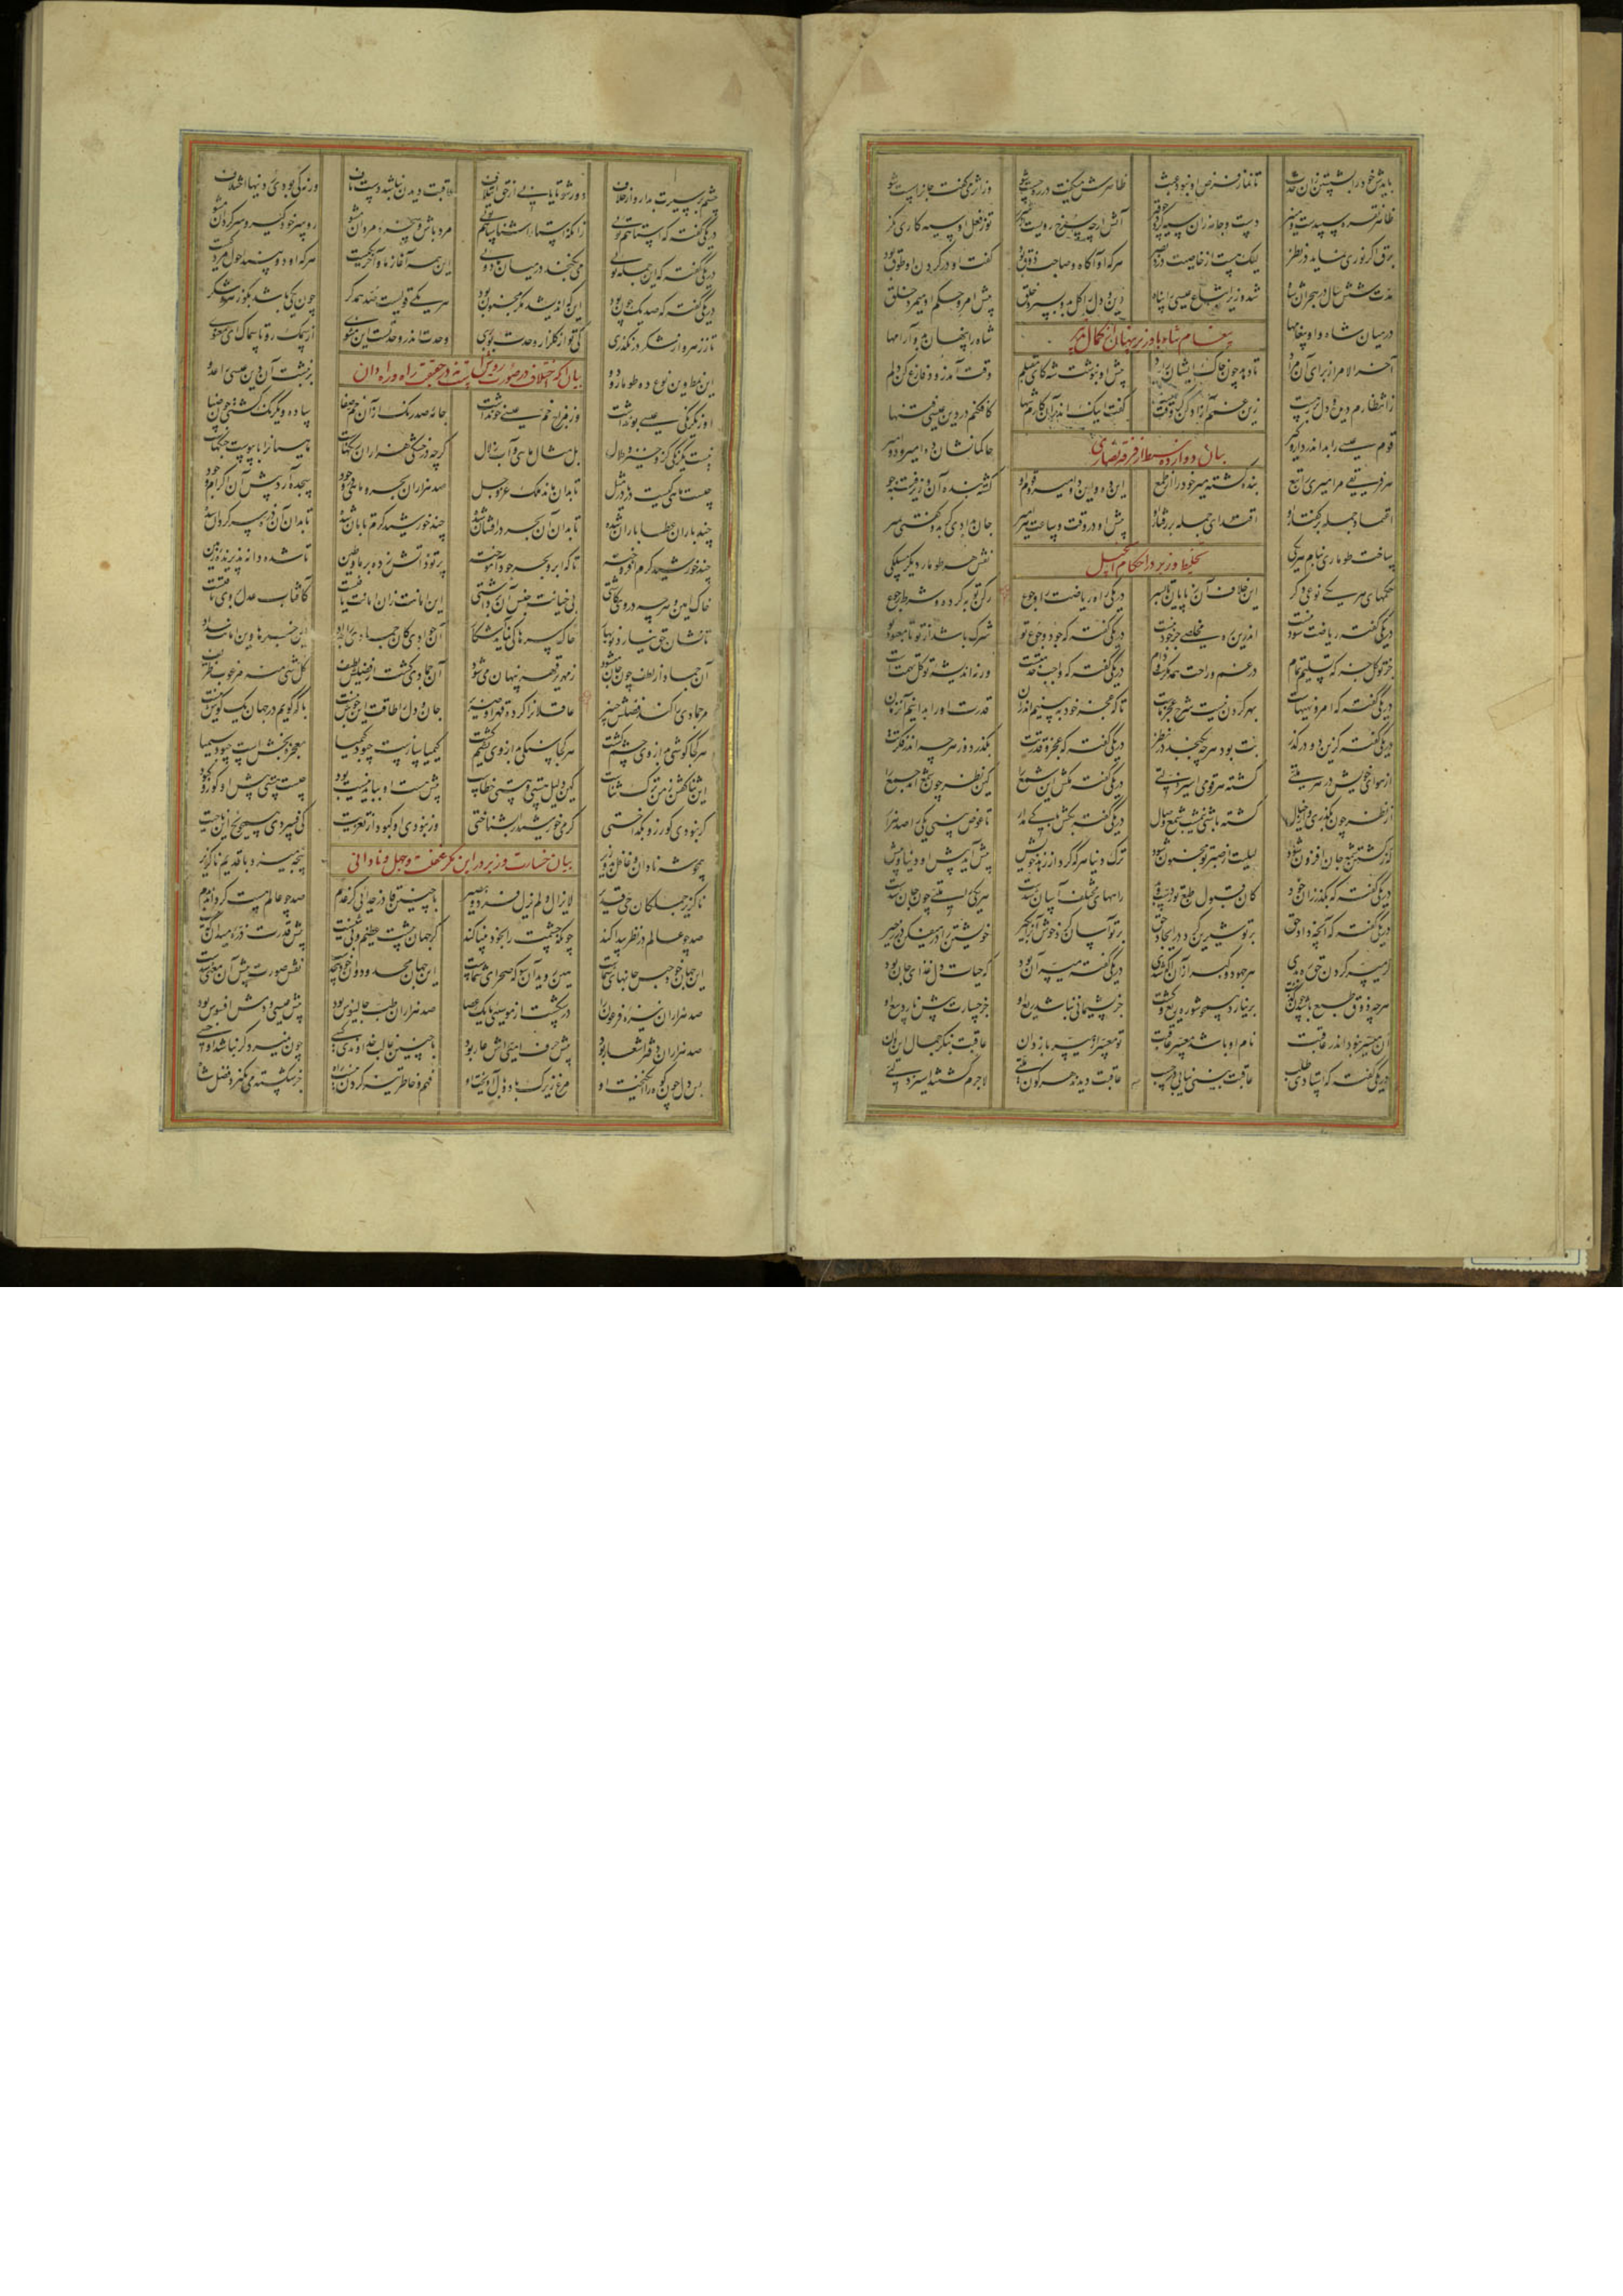 بایدش خود را بشستن زان حدث تا نماز فرض او نبود عبث ظاهرش میگفت در ره چست شو وز اثر میگفت جان را سست شو
ظاهر نقره گر سپیدست و منیر دست و جامه زان سیه گردد چو قیر آتش ارچه سرخ رویست از شرر تو ز فعل او سیه کاری نگر
برق اگر نوری نماید در نظر لیک هست از خاصیت دزد بصر هر که او آگاه و صاحب ذوق بود گفت او در گردن او طوق بود
مدت شش سال در هجران شاه شد وزیر اتباع عیسی را پناه دین و دل را کل بدو بسپرد خلق پیش امر و حکم او میمرد خلق
پیغام شاه با وزیر پنهان از کمال
در میان شاه و او پیغامها شاه را پنهان بدو آرامها
آخر الامر از برای آن مراد تا دهد چون خاک ایشان را بباد پیش او بنوشت شه کای مقبلم وقت آمد زود فارغ کن دلم
زانتظارم دیده و دل بر رهست زین غمم آزاد کن گر وقت هست گفت اینک اندر آن کارم شها کافکنم در دین عیسی فتنها
بیان دوازده سبط از فرقه نصاری
قوم عیسی را بد اندر دار و گیر حاکمانشان ده امیر و دو امیر
هر فریقی مر امیری را تبع بنده گشته میر خود را از طمع این ده و این دو امیر و قوم او گشته بنده آن وزیر
اعتماد جمله بر گفتار او اقتدای جمله بر رفتار او پیش او در وقت و ساعت هر امیر جان بدادی گر بدو گفتی بمیر
تخلیط وزیر در احکام انجیل
ساخت طوماری بنام هر یکی نقش هر طومار دیگر مسلکی
حکمهای هر یکی نوعی دگر این خلاف آن ز پایان تا بسر در یکی راه ریاضت را و جوع رکن توبه کرده و شرط رجوع
در یکی گفته ریاضت سود نیست اندرین ره مخلصی جز جود نیست در یکی گفته که جود و جوع تو شرک باشد از تو تا معبود تو
جز توکل جز که تسلیم تمام در غم و راحت همه مکرست و دام در یکی گفته که واجب خدمتست ورنه اندیشه توکل تهمتست
در یکی گفته که امر و نهیهاست بهر کردن نیست شرح عجز ماست تا که عجز خود ببینیم اندر آن قدرت او را بدانیم آن زمان
در یکی گفته کزین دو در گذر بت بود هر چه بگنجد در نظر در یکی گفته که عجز و قدرتت بگذر از هر چه اندر فکرتت
از هوای خویش در هر ملتی گشته هر قومی اسیر ذلتی در یکی گفته مکش این شمع را کین نظر چون شمع آمد جمع را
از نظر چون بگذری و از خیال کشته باشی نیم شب شمع وصال در یکی گفته بکش باکی مدار تا عوض بینی یکی را صد هزار
که ز کشتن شمع جان افزون شود لیلیت از صبر تو مجنون شود ترک دنیا هر که کرد از زهد خویش پیش آمد پیش او دنیا و بیش
در یکی گفته که بگذر زان خود کان قبول طبع تو ردست و بد راههای مختلف آسان شدست هر یکی را ملتی چون جان شدست
در یکی گفته که آنچه داد حق بر تو شیرین کرد در ایجاد حق بر تو آسان کرد و خوش آنرا بگیر خویشتن را در میفکن در زحیر
گر میسر کردن حق ره بدی هر جهود و گبر ازو آگه بدی در یکی گفته میسر آن بود که حیات دل غذای جان بود
هر چه ذوق طبع باشد چون گذشت بر نیارد همچو شوره ریع و کشت جز پشیمانی نباشد ریع او جز خسارت پیش نارد بیع او
آن میسر نبود اندر عاقبت نام او باشد معسر عاقبت تو معسر از میسر باز دان عاقبت بنگر جمال این و آن
در یکی گفته که استادی طلب عاقبت بینی نیابی در حسب عاقبت دیدند هر گون ملتی لاجرم گشتند اسیر زلتی
چشم بر دور شو تا یابی از حق عاقبت دیدن نباشد دست باف ورنه کی بودی ز دینها اختلاف
در یکی گفته که استا هم توی زانکه استا را شناسا هم توی مرد باش و سخره مردان مشو رو سر خود گیر و سرگردان مشو
در یکی گفته که این جمله توی می نگنجد در میان ما دوی این همه آغاز ما و آخر یکیست هر که او دو بیند احول مردکیست
در یکی گفته که صد یک چون بود این که اندیشد مگر مجنون بود هر یکی قولیست ضد همدگر چون یکی باشد بگو زهر و شکر
تا ز زهر و از شکر در نگذری کی تو از گلزار وحدت بو بری وحدت اندر وحدتست این مثنوی از سمک رو تا سماک ای معنوی
بیان آنکه اختلاف در صورت روش است نه در حقیقت راه
این نمط وین نوع ده طومار و دو بر نبشت آن دین عیسی را عدو
او ز یکرنگی عیسی بو نداشت وز مزاج خم عیسی خو نداشت جامه صد رنگ از آن خم صفا ساده و یکرنگ گشتی چون ضیا
نیست یکرنگی کزو خیزد ملال بل مثال ماهی و آب زلال گرچه در خشکی هزاران رنگهاست ماهیانرا با یبوست جنگهاست
چیست ماهی کیست دریا در مثل تا بدان ماند ملک عز و جل صد هزاران بحر و ماهی در وجود سجده آرد پیش آن اکرام و جود
چند باران عطا باران شده تا بدان آن بحر در افشان شده چند خورشید کرم تابان شده تا بدان آن ذره سرگردان شده
چند خورشید کرم افروخته تا که ابر و بحر جود آموخته پرتو ذاتش زده بر ما و طین تا شده دانه پذیرنده زمین
خاک امین و هر چه در وی کاشتی بی خیانت جنس آن برداشتی این امانت زان امانت یافتست کافتاب عدل بر وی تافتست
تا نشان حق نیارد نوبهار خاک سرها کی نماید آشکار آن جوادی کان جمادی را بداد این خبرها وین امانت وین سداد
آن جماد از لطف چون جان میشود زمهریر قهر پنهان میشود آن جمادی گشت از فضلش لطیف کل شی من ظریف هو ظریف
مر جمادی را کند فضلش خبیر عاقلانرا کرده قهر او ضریر جان و دل را طاقت این جوش نیست با که گویم در جهان یک گوش نیست
هر کجا گوشی بد از وی چشم گشت هر کجا سنگی بد از وی یشم گشت کیمیا سازست چبود کیمیا معجزه بخش است چبود سیمیا
این ثنا گفتن ز من ترک ثناست کین دلیل هستی و هستی خطاست پیش هست او بباید نیست بود چیست هستی پیش او کور و کبود
گر نبودی کور زو بگداختی گرمی خورشید را بشناختی ور نبودی او کبود از تعزیت کی فسردی همچو یخ این ناحیت
بیان خسارت وزیر در این مکر و غفلت و جهل و نادانی
همچو شه نادان و غافل بد وزیر پنجه میزد با قدیم ناگزیر
ناگزیر جملگان حی قدیر لایزال و لم یزل فرد بصیر با چنین قادر خدایی کز عدم صد چو عالم هست گرداند بدم
صد چو عالم در نظر پیدا کند چونکه چشمت را بخود بینا کند گر جهان پیشت عظیم و بی تنیست پیش قدرت ذره میدان که نیست
این جهان خود حبس جانهای شماست هین روید آنسو که صحرای شماست این جهان محدود و آن خود بیحدست نقش صورت پیش آن معنی سدست
صد هزاران نیزه فرعون را در شکست از موسیی با یک عصا صد هزاران طب جالینوس بود پیش عیسی و دمش افسوس بود
صد هزاران دفتر اشعار بود پیش حرف امیی اش عار بود با چنین غالب خداوندی کسی چون نمیرد گر نباشد او خسی
بس دل چون کوه را انگیخت او مرغ زیرک با دو پا آویخت او فهم و خاطر تیز کردن نیست راه جز شکسته می نگیرد فضل شاه